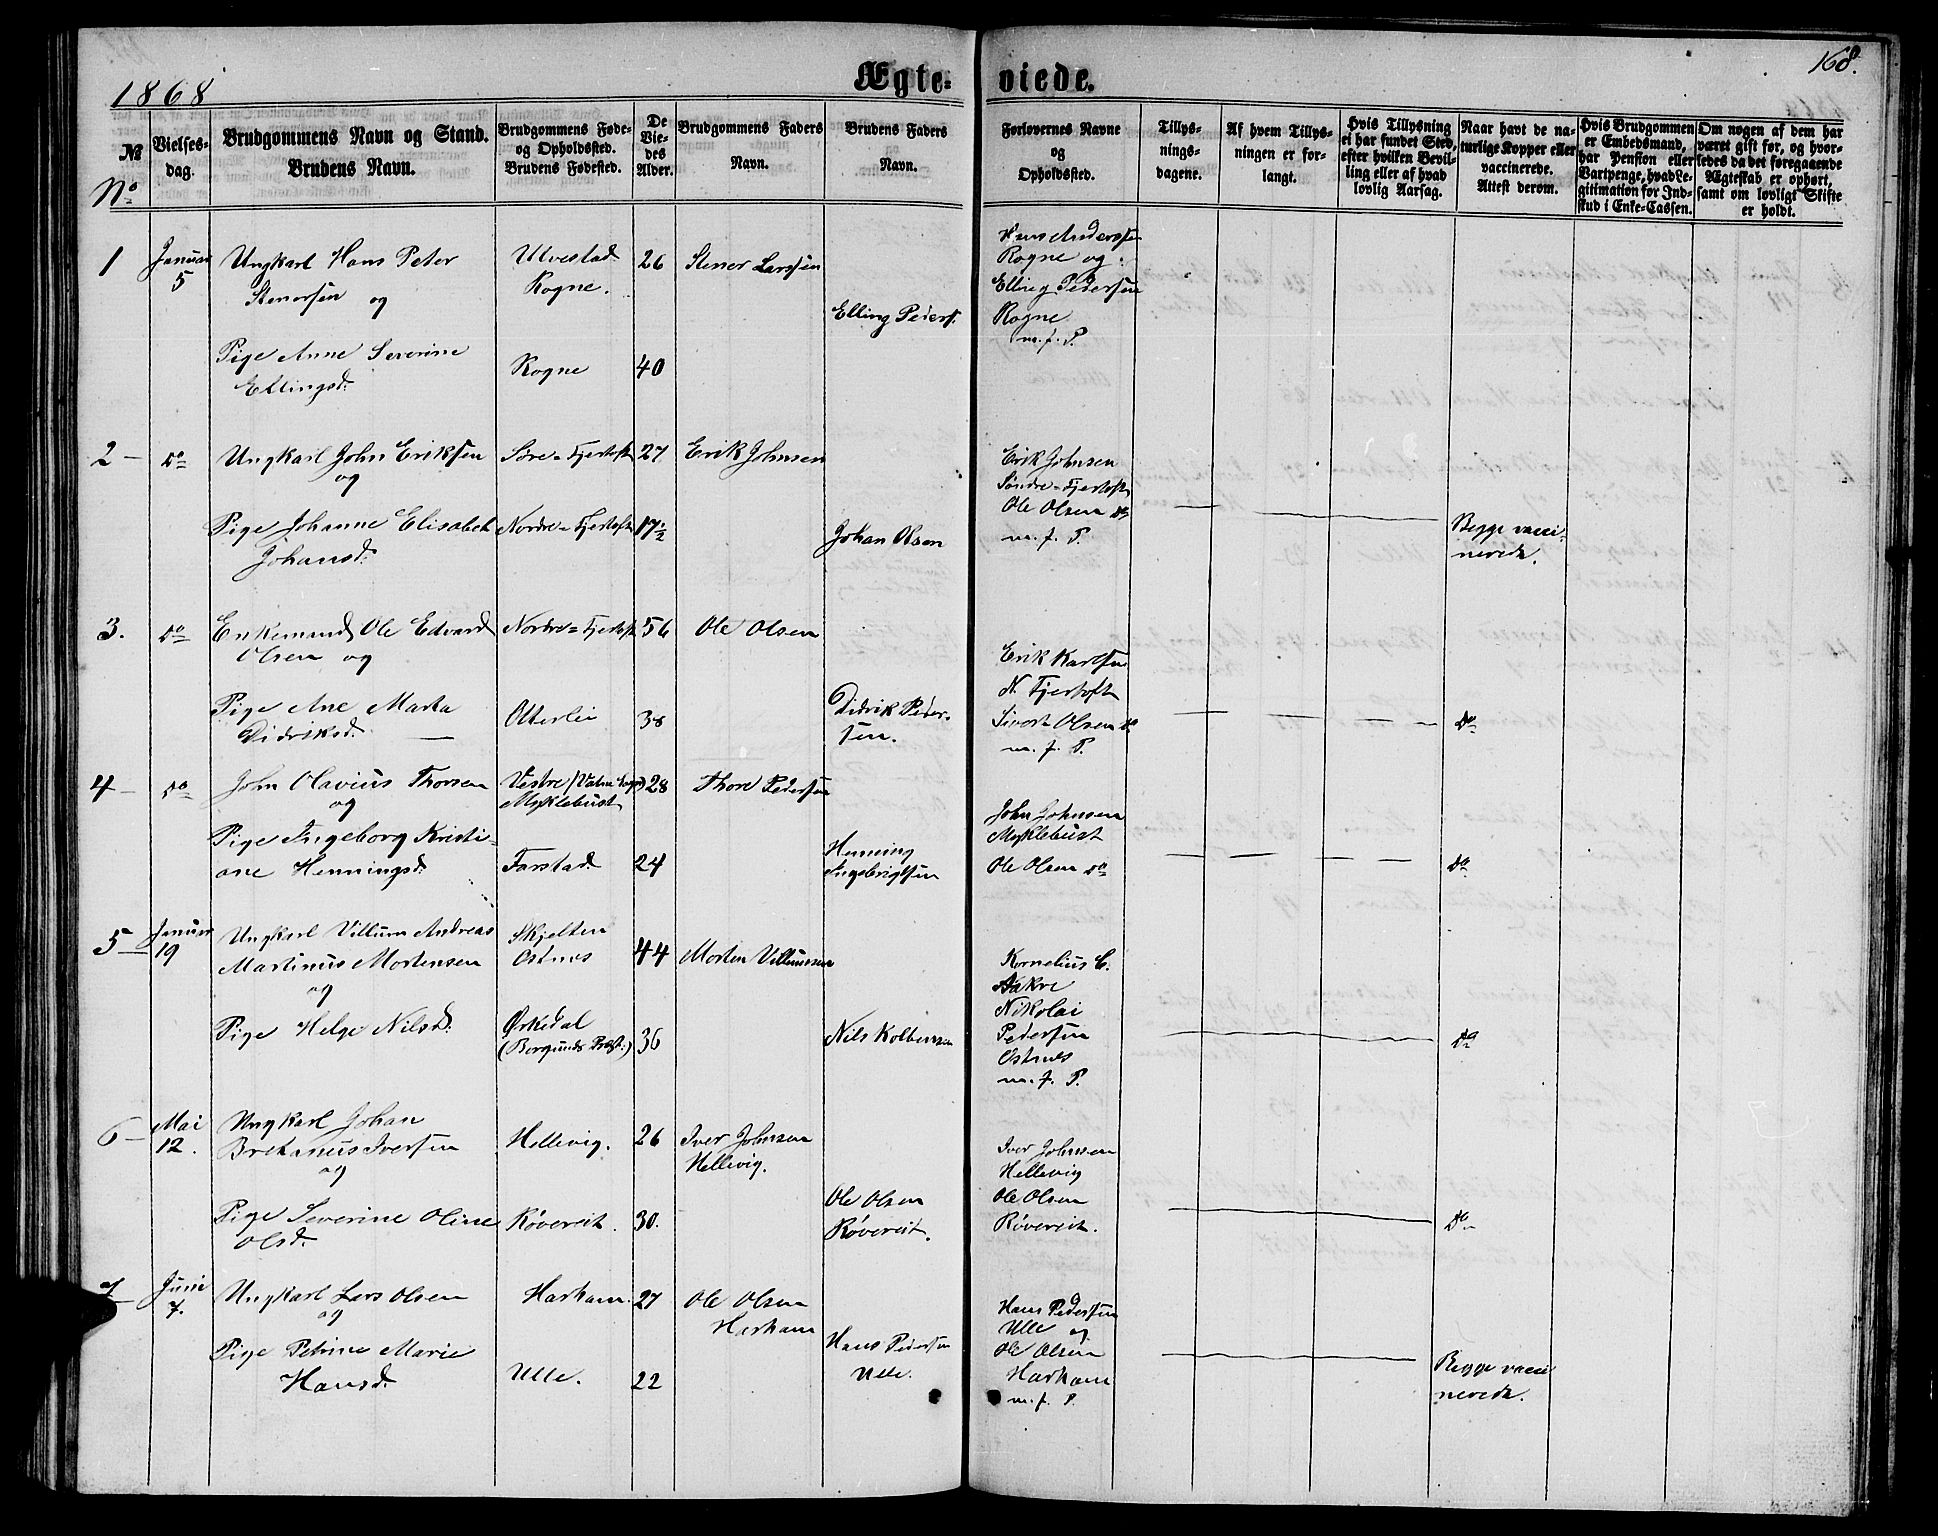 168.
1868
Ægteviede.
№
Vielses-
dag.
Brudgommens Navn og Stand.
Brudens Navn.
Brudgommens Føde-
og Opholdssted.
Brudens Fødested.
De
Vie-
des
Alder.
Brudgommens Faders
Navn.
Brudens Faders
Navn.
Forlovernes Navne
og
Opholdssted.
Tillys-
nings-
dagene.
Af hvem Tillys-
ningen er for-
langt.
Hvis Tillysning
ei har fundet Sted,
efter hvilken Bevil-
ling eller af hvad
lovlig Aarsag.
Naar havt de na-
turlige Kopper eller
vaccinerede.
Attest derom.
Hvis Brudgommen
er Embedsmand,
har Pension eller
Vartpenge, hvad Le-
gitimation for Ind-
skud i Enke-Cassen.
Om nogen af dem har
været gift før, og hvor-
ledes da det foregaaende
Ægteskab er ophørt,
samt om lovligt Skifte
er holdt.
No
1
Januar
5
Ungkarl Hans Peter
Stenersen og
Ulvestad
Rogne.
26
Stener Larssen
Hans Anderssen
Rogne og
Elling Pedersen
Rogne
m. f. P.
Elling Peders.
Pige Anne Severine
Ellingsd.
Rogne
40
2 —
do
Ungkarl John Eriksen
og
Søre=Fjertoft
27
Erik Johnsen
Erik Johnsen
Søndre=Fjertoft
Ole Olsen do
m. f. P.
Pige Johanne Elisabet
Johansd.
Nordre=Fjertoft
17½
Johan Olsen
Begge vacci-
nerede.
3.
do
Enkemand Ole Edvard
Olsen og
Nordre=Fjertoft
56
Ole Olsen
Erik Karlsen
N. Fjertoft
Sivert Olsen do
m. f. P.
Pige Ane Marta
Didriksd.
Otterlei
38
Didrik Peder-
sen.
do
4 —
do
John Olavius Thorsen
og
Vestre (Vatne Sogn)
Myklebust
28
Thore Pedersen
John Johnsen
Myklebust
Ole Olsen do
Pige Ingeborg Kristi-
ane Henningsd.
Farstad
24
Henning
Ingebrigtsen
do
5
Januar
19
Ungkarl Villum Andreas
Martinus Mortensen
og
Skjelten
Ostnes
44
Morten Villumsen
Kornelius C.
Aakre
Nikolai
Pedersen
Ostnes
m. f. P.
Pige Helge Nilsd.
Ørskedal
(Borgunds Præst.)
36
Nils Kolbensen
do
6 —
Mai
12.
Ungkarl Johan
Bretanus Iversen
og
Hellevig.
26
Iver Johnsen
Hellevig.
Iver Johnsen
Hellevig
Ole Olsen
Røvereit.
Pige Severine Oline
Olsd.
Røvereit.
30.
Ole Olsen
Røvereit.
do
7
Juni
7.
Ungkarl Lars Olsen
og
Harham.
27
Ole Olsen
Harham
Hans Pedersen
Ulle og
Ole Olsen
Harham
m. f. P.
Pige Petrine Marie
Hansd.
Ulle.
22
Hans Pedersen
Ulle.
Begge vacci-
nerede.